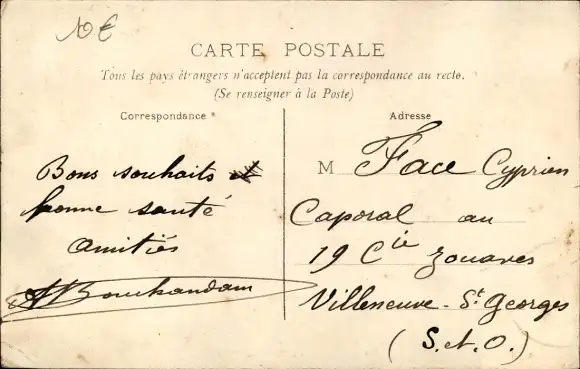 10 €
CARTE POSTALE
Tous les pays étrangers n'acceptent pas la correspondance au recto.
(Se renseigner à la Poste)
Correspondance *
Adresse
Bons souhaits et
bonne santé
Amitiés
M Face Cyprien
Caporal au
19 Cie Zouaves
Villeneuve - St Georges
(S. et. O.)